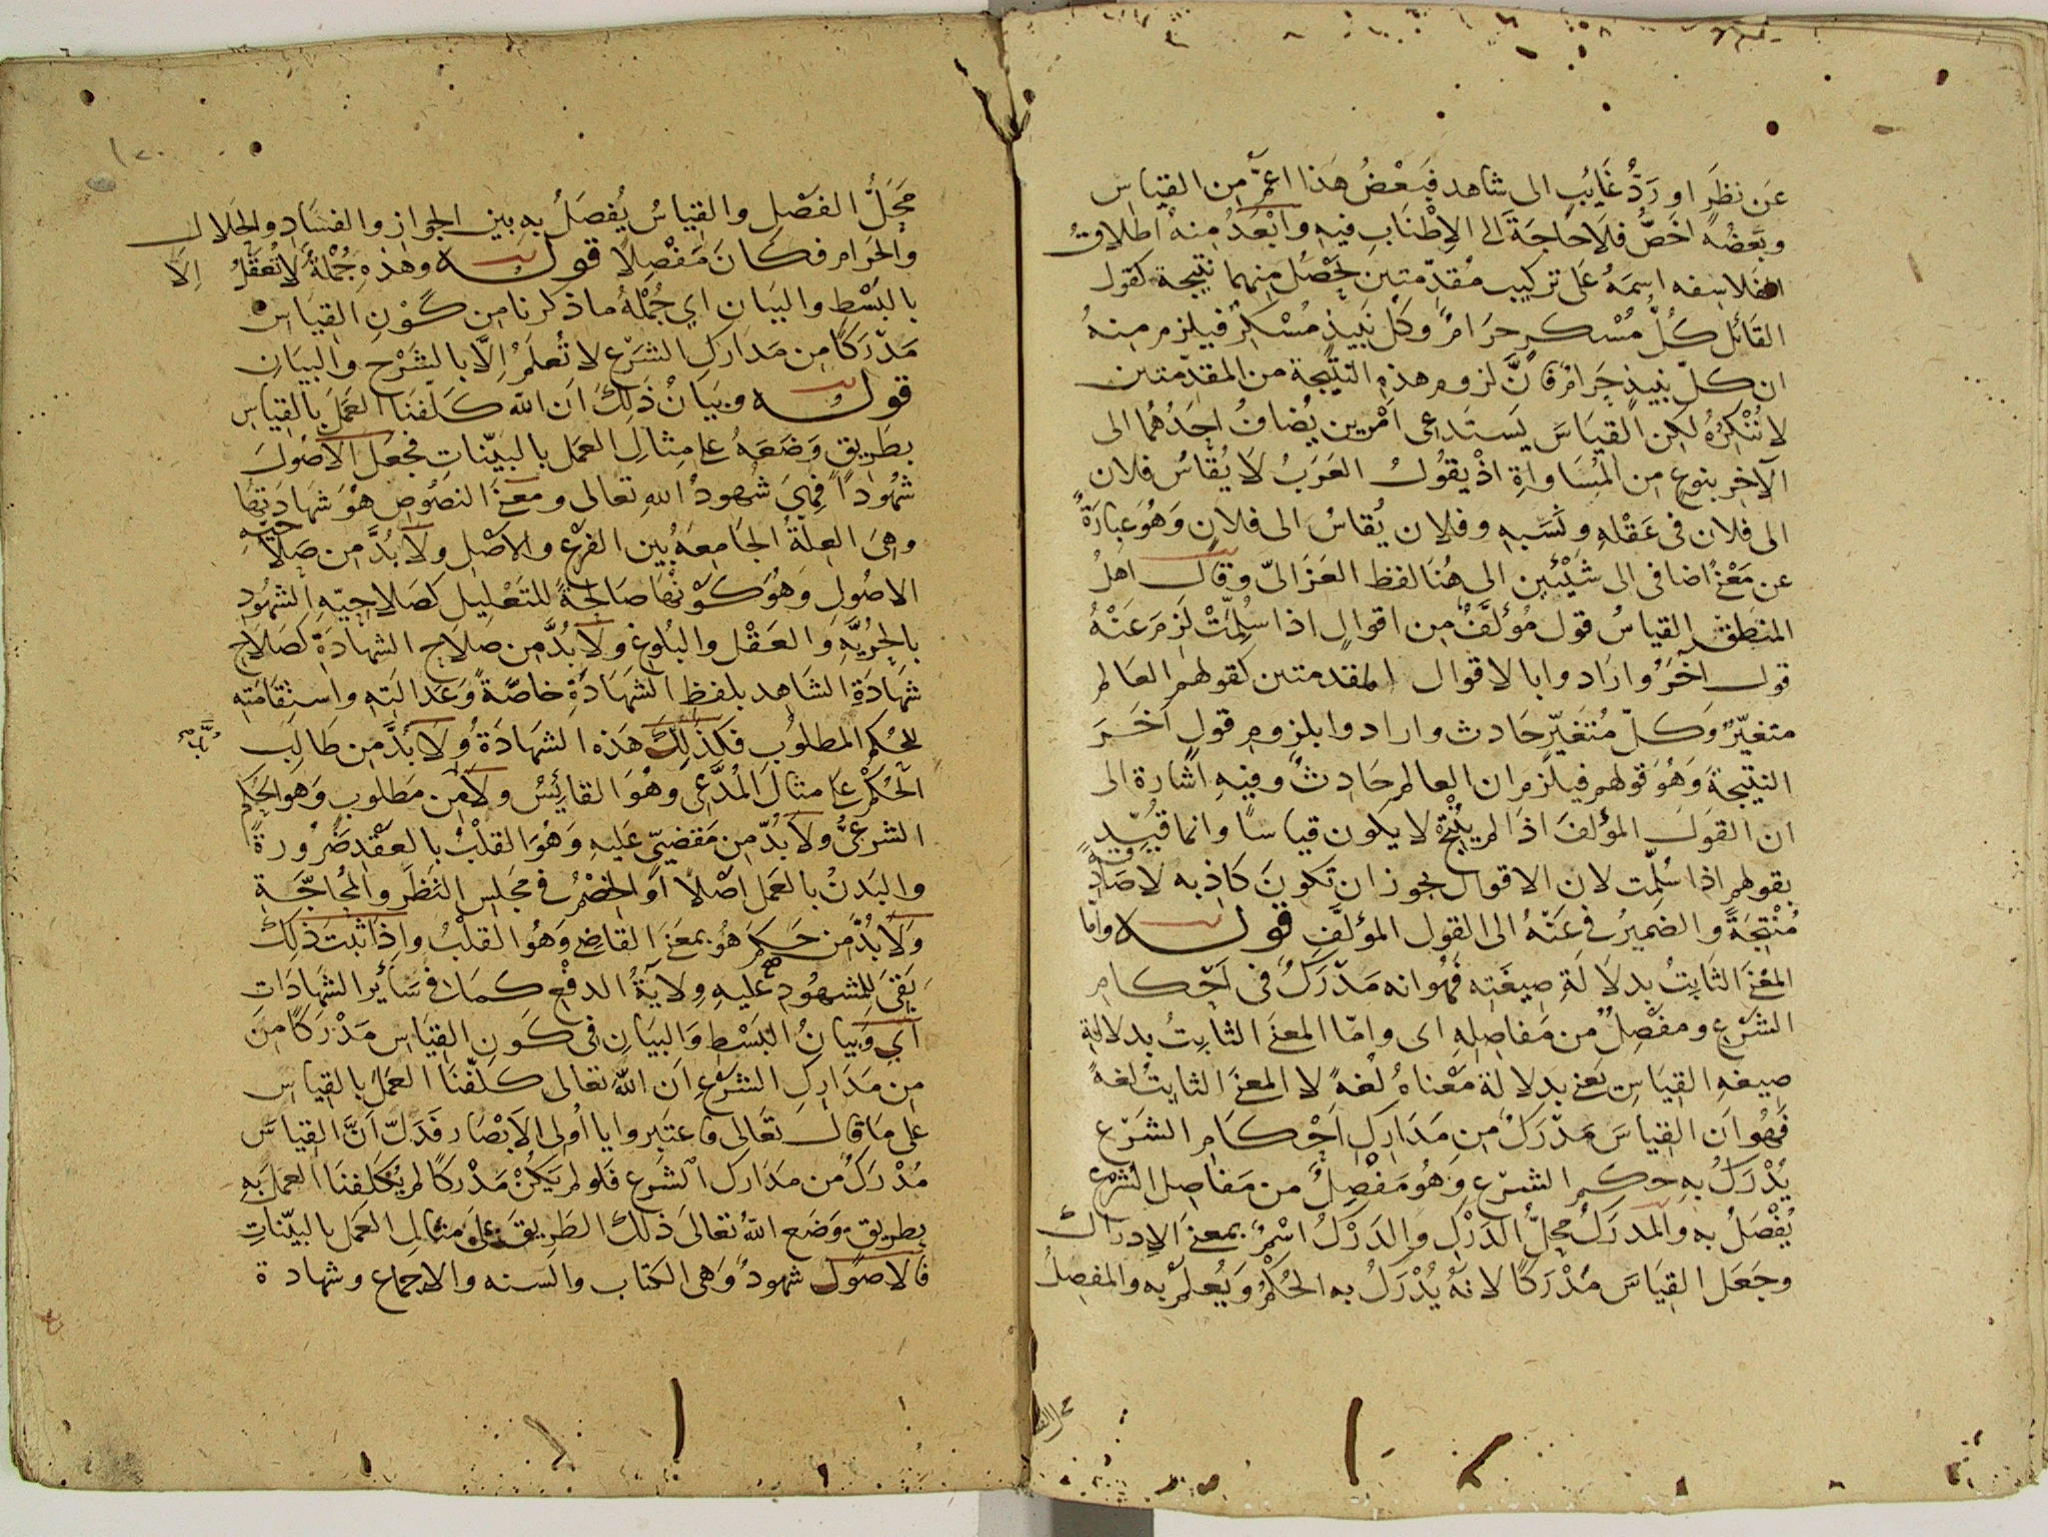 عَن نظَرٍ او رَدُّ غَايبٍ الى شاهد فبَعْضُ هَذا اعمُّ مِن القياس
وبَعْضُهُ اخَصُّ فلَا حَاجَةَ الى الاِطْنَابِ فيهِ وابْعَدُ مِنهُ اطلاقُ
الفلاسفه اسمَهُ على تركيب مُقدّمتين يَحْصُل مِنهما نتيجة كقول
القائل كُلُّ مُسْكرٍ حرَامٌ وكلّ نَبيذٍ مُسْكرٌ فيلزم منهُ
ان كلّ نبيذٍ حَرامٌ فانَّ لزوم هذه النتيجة من المقدّمتين
لا نُنْكِرُهُ لكِن القيَاسَ يَستَدعى امْرين يُضافُ احَدُهُما الى
الآخِر بنوعٍ من المُسَاواةِ اذ يقُولُ العَرَبُ لَا يُقَاسُ فلان
الى فلان فى عَقْلهِ ونَسَبهِ وفلان يُقاسُ الى فلانٍ وَهُوَ عبارَةٌ
عن مَعْنًى اضافى الى شيْئين الى هُنَا لفظ الغزالىّ وقال اهلُ
المنطق القياسُ قول مُؤلَّفٌ من اقوالٍ اذا سُلِّمَتْ لَزِمَ عَنْهُ
قول آخَرُ وارَادوا بالاقوال المقدمتين كقولهم العالم
متغيّرٌ وَكلّ مُتغيّرٍ حَادث وارادوا بلزوم قولٍ آخَرَ
النتيجةَ وَهُوَ قولهم فيلزم ان العالم حَادِثٌ وفيهِ اشارة الى
ان القولَ المؤلفَ اذا لم يُنْتِج لا يكون قياسًا وانما قيّد
بقولهم اذا سُلّمت لان الاقوال يجوز ان تكونَ كاذبه لا صَادقة
مُنْتِجَةً والضميرُ فى عَنْهُ الى القول المؤلَّفِ قوله وامّا
المعْنَى الثابِتُ بدلَالَةِ صِيغَتِه فهُو انه مَدْرَكٌ فى احْكامِ
الشَّرْعِ ومَفْصِلٌ من مَفاصِلِهِ اى وامّا المعنَى الثابتُ بدلالةِ
صيغهِ القيَاسِ يَعنى بدلالة مَعْناهُ لُغَةً لا المعنَى الثابتُ لغةً
فَهُو اَن القِياسَ مَدْرَكٌ مِن مَدَارِكِ اَحْكامِ الشَّرْع
يُدْرَكُ بهِ حكم الشرْع وَهُوَ مَفْصِلٌ من مَفاصِل الشَّرْعِ
يُفْصَلُ به والمَدْرَكُ محلُّ الدَّرْكِ والدَرْكُ اسْمٌ بمعنَى الاِدراك
وجَعَل القِيَاسَ مَدْرَكًا لانهُ يُدْرَكُ به الحُكْمُ ويُعلمُ به والمفصِلُ
مَحَلُّ الفَصْلِ والقِيَاسُ يُفصَلُ به بين الجواز والفسَادِ والحَلال
والحَرامِ فكانَ مَفْصِلًا قوله وهذهِ جُمْلةٌ لَا تُعْقَلُ اِلّا
بالبَسْطِ والبيَان اي جُمْلةُ ما ذكرنا مِن كَوْنِ القيَاسِ
مَدْرَكًا مِن مَدَارك الشرْع لا تُعلَمُ اِلّا بالشَرْح والبيَان
قوله وبيَانُ ذَلِكَ اَن الله كلّفَنَا العَمَلَ بالقياسِ
بطَريقٍ وَضَعَهُ على مِثالِ العمَل بالبيّناتِ فجعَل الاُصُولَ
شهُودًا فهىَ شُهودُ اللهِ تعَالى ومَعنَى النصُوصِ هوَ شَهادَتهَا
وهِىَ العِلّةُ الجامعَةُ بين الفَرْع والاَصْلِ ولَا بُدَّ من صَلاحيّهِ
الاصُولِ وَهُوَ كوْنهَا صَالحَةً للتعْليل كصَلاحيّهِ الشهُودِ
بالحُريّةِ والعَقْل والبُلوغِ ولَا بُدَّ مِن صلاحِ الشهادَةِ كصَلاحِ
شهَادَةِ الشاهِد بلفظِ الشهَادَةِ خاصّةً وَعَدالتهِ واستِقامَتهِ
للحُكم المطلوبِ فكذلِكَ هَذه الشهادَةُ ولَا بُدَّ مِن طالبِ
الحُكمِ على مثال المُدَّعى وهُوَ القائِسُ ولَا مِن مَطلوبٍ وَهوَ الحُكم
الشرعىُّ ولَا بُدّ مِن مَقضىّ عَليهِ وَهُوَ القلْبُ بالعَقْدِ ضَرُورةً
والبَدنُ بالعَمل اصْلًا اوَ الخَصْمُ فى مجلِس النظَرِ والمُحاجّةِ
ولَا بُدَّ من حَكمٍ هُوَ بمعنَى القاضى وهُوَ القلبُ واِذا ثبتَ ذلِكَ
بَقىَ للمشهُودِ عَليهِ وِلايَةُ الدفْعِ كما فى سَائر الشهَادَاتِ
اى وَبيَانُ البَسْطِ والبيَانِ فى كَونِ القيَاس مَدْرَكًا مِنَ
مِن مَدَارِكِ الشرْعِ اَن اللهَ تعَالى كلّفنَا العَمَلَ بالقِياسِ
على مَا قالَ تعَالى فاعتَبروا يا اُولى الاَبْصَار فدَلّ اَنَّ القياسَ
مُدْرَكٌ من مدَارك الشَرع فلو لم يَكُنْ مَدْركًا لم يُكلّفنَا العمَل بَهِ
بطريقٍ وَضَع اللهُ تعالىَ ذلك الطَرِيقَ علىَ مثالِ العَمل بالبيّناتِ
فالاصُولُ شهودٌ وَهى الكتاب والسنه والاجماع وشهادة